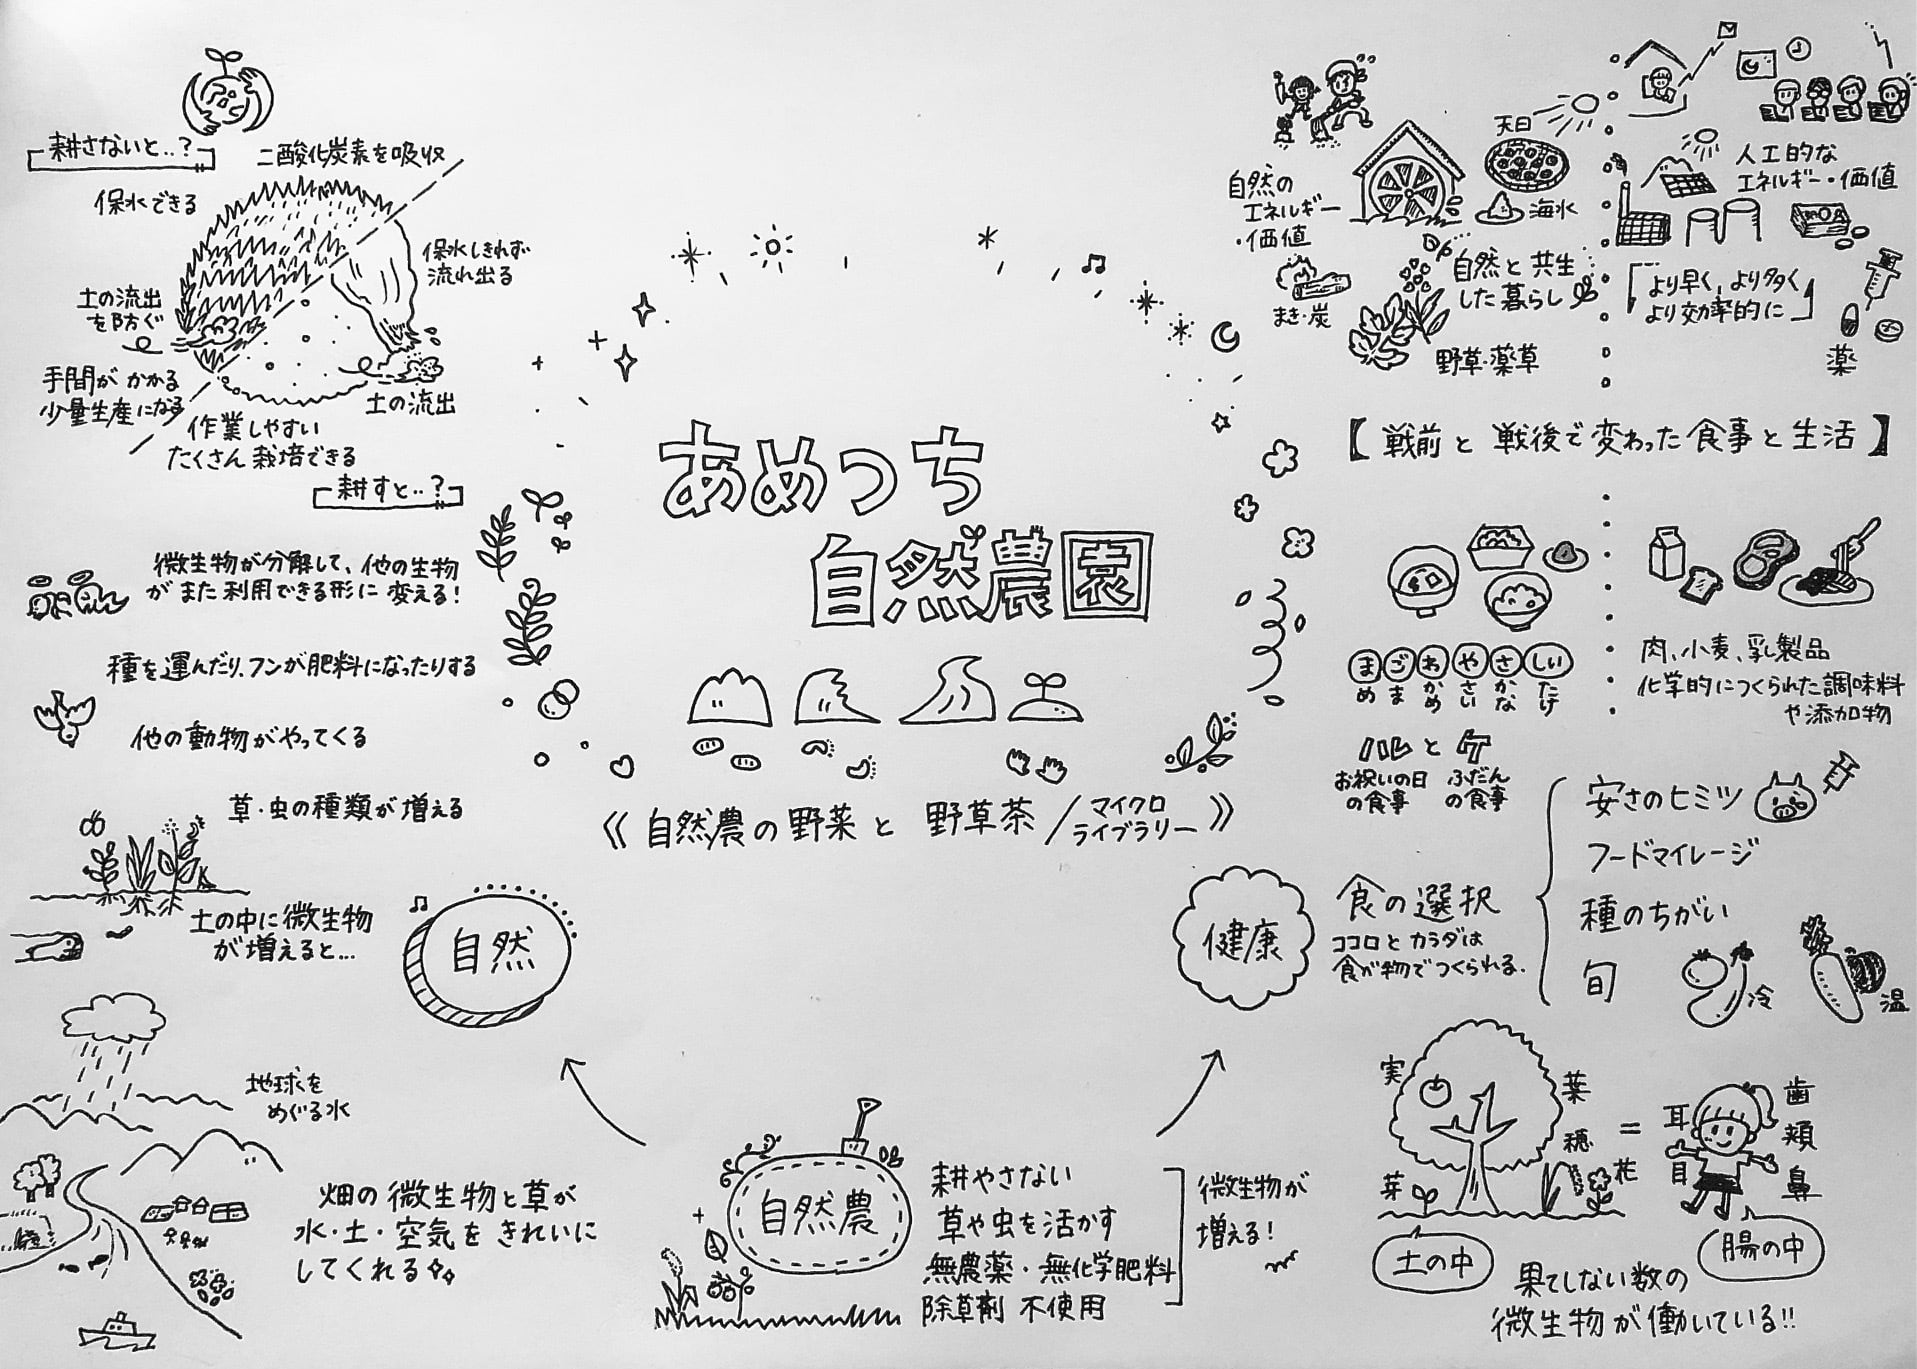 あめつち
自然農園
《自然農の野菜と 野草茶/マイクロ
ライブラリー》
耕さないと..?
二酸化炭素を吸収
保水できる
保水しきれず
流れ出る
土の流出
を防ぐ
手間がかかる
少量生産になる
土の流出
作業しやすい
たくさん栽培できる
耕すと..?
微生物が分解して、他の生物
がまた利用できる形に変える!
種を運んだり、フンが肥料になったりする
他の動物がやってくる
草・虫の種類が増える
土の中に微生物
が増えると...
自然
地球を
めぐる水
畑の微生物と草が
水・土・空気をきれいに
してくれる
自然農
耕やさない
草や虫を活かす
無農薬・無化学肥料
除草剤 不使用
微生物が
増える!
天日
自然の
エネルギー
・価値
海水
まき・炭
自然と共生
した暮らし
野草・薬草
人工的な
エネルギー・価値
「より早く、より多く
より効率的に」
薬
【戦前と戦後で変わった食事と生活】
まごわやさしい
まめ
ごま
わかめ
やさい
さかな
しいたけ
ハレとケ
お祝いの日
の食事
ふだん
の食事
肉、小麦、乳製品
化学的につくられた調味料
や添加物
健康
食の選択
ココロとカラダは
食べ物でつくられる.
安さのヒミツ
フードマイレージ
種のちがい
旬
冷
温
実
葉
穂
花
芽
=
耳
目
歯
頬
鼻
土の中
腸の中
果てしない数の
微生物が働いている!!